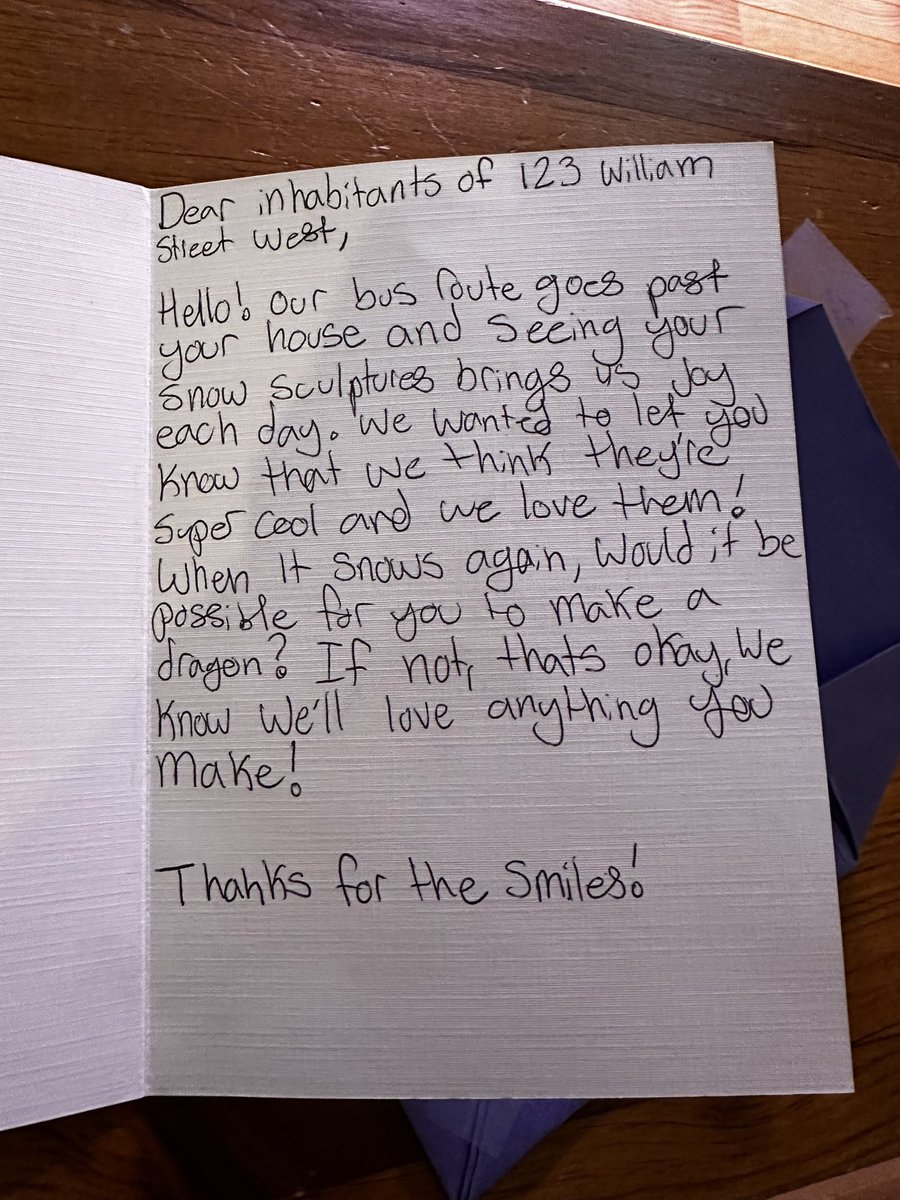 Dear inhabitants of 123 William
Street West,
Hello! Our bus route goes past
your house and seeing your
snow sculptures brings us joy
each day. We wanted to let you
know that we think they're
super cool and we love them!
When it snows again, would it be
possible for you to make a
dragon? If not, thats okay, we
know we'll love anything you
make!
Thanks for the smiles!